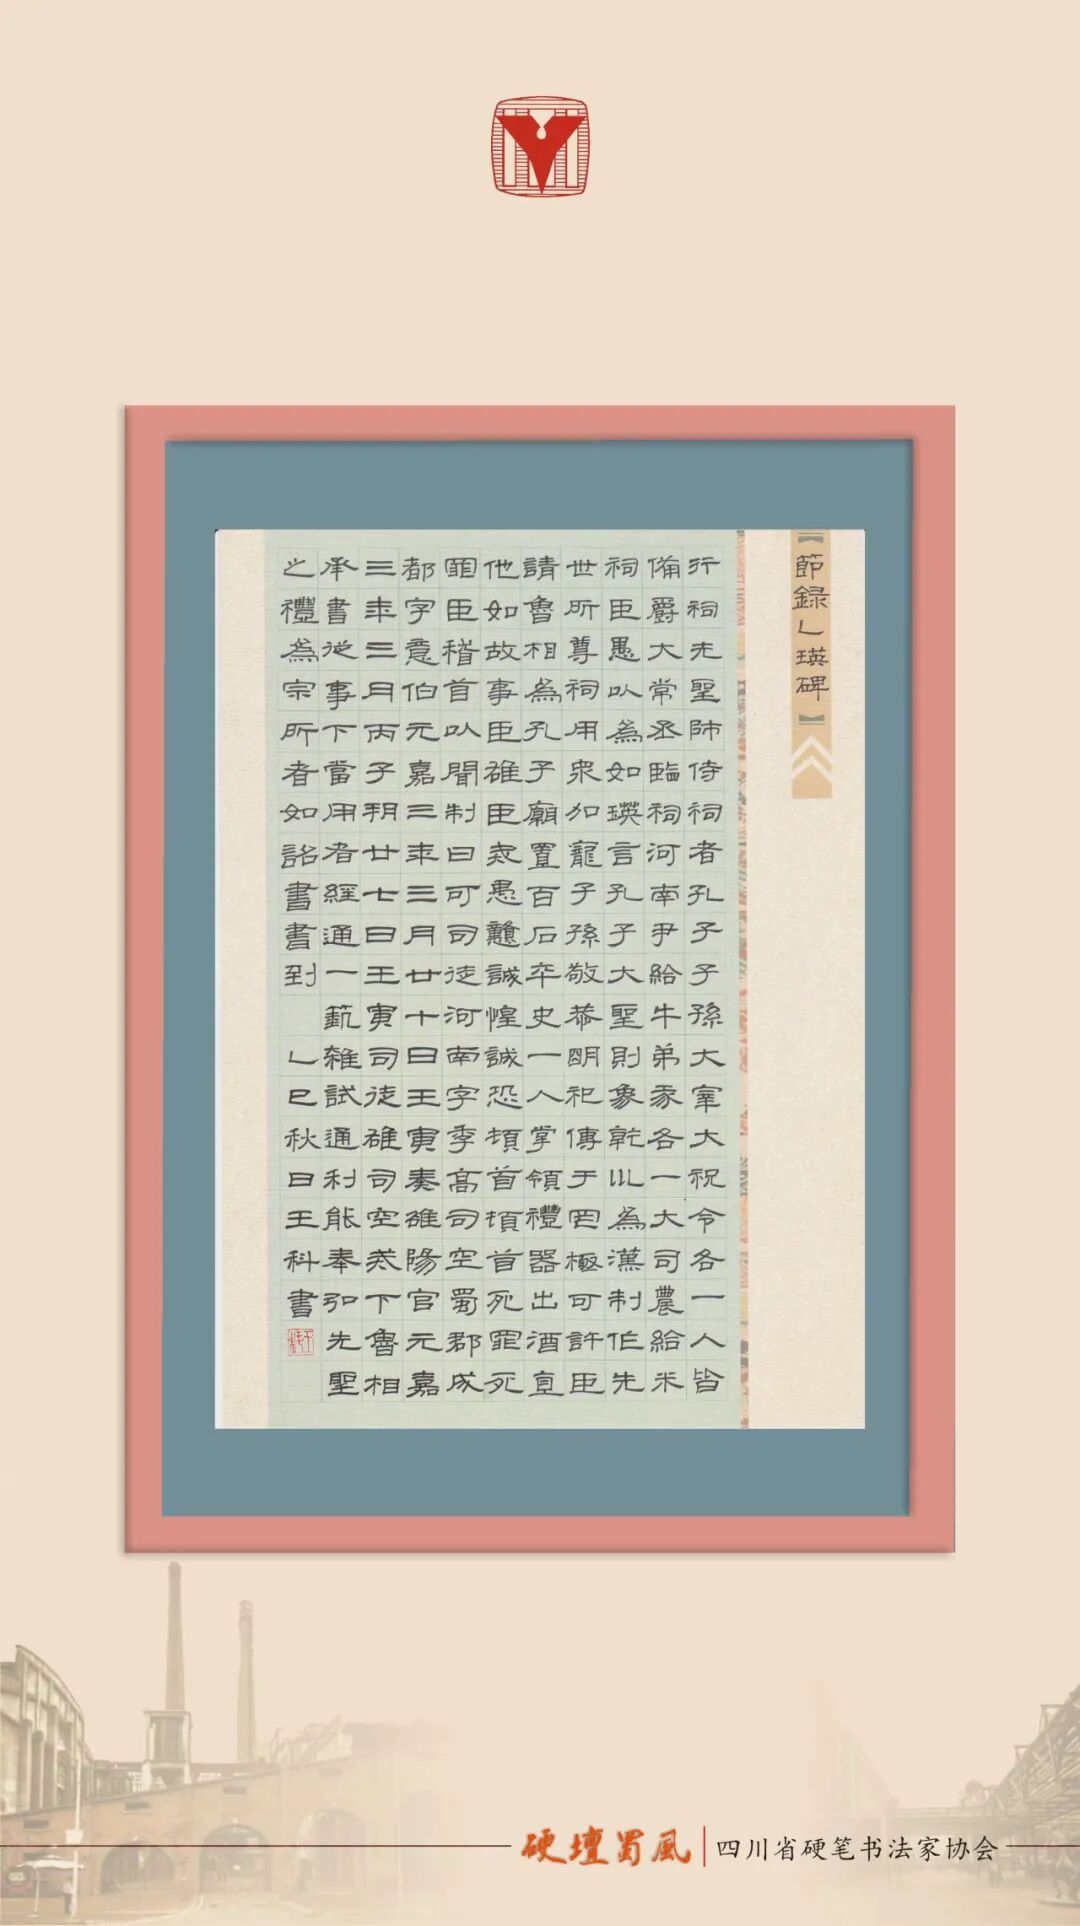 【節録乙瑛碑】
行祠先聖師侍祠者孔子子孫大宰大祝令各一人皆
備爵大常丞臨祠河南尹給牛弟豕各一大司農給米
祠臣愚以為如瑛言孔子大聖則象乾川為漢制作先
世所尊祠用眾加寵子孫敬恭明祀傳于罔極可許臣
請魯相為孔子廟置百石卒史一人掌領禮器出酒直
他如故事臣雄臣戒愚戇誠惶誠恐頓首頓首死罪死
罪臣稽首以聞制曰可司徒河南字季高司空蜀郡成
都字意伯元嘉三年三月廿十日王寅奏雒陽官元嘉
三年三月丙子朔廿七日王寅司徒雄司空戒下魯相
承書從事下當用者經通一藝雜試通利能奉弘先聖
之禮為宗所者如詔書書到 乙巳秋日王科書
硬壇蜀風 四川省硬笔书法家协会